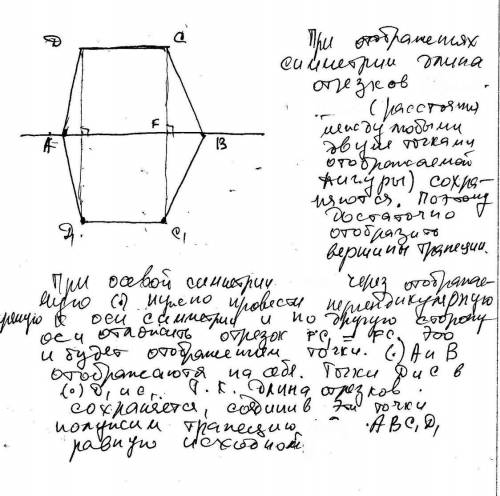 D C
A F B
D₁ C₁
При отображениях
симметрии длина
отрезков
(расстояния
между любыми
двумя точками
отображаемой
фигуры) сохра-
няются. Поэтому
достаточно
отобразить
вершины трапеции.
При осевой симметрии через отобража-
емую (•) нужно провести перпендикулярную
прямую к оси симметрии и по другую сторону
оси отложить отрезок FC₁ = FC. Это
и будет отображением точки. (•) A и B
отображаются на себя. Точки D и C в
(•) D₁ и C₁. Т.к. длина отрезков
сохраняется, соединив эти точки
получим трапецию ABC₁D₁
равную исходной.